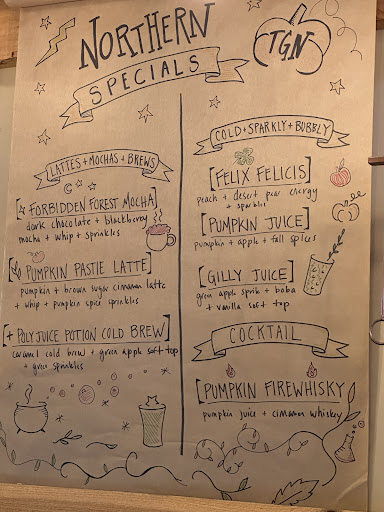 NORTHERN
SPECIALS
TGN
LATTES + MOCHAS + BREWS
[☆ FORBIDDEN FOREST MOCHA]
dark chocolate + blackberry
mocha + whip + sprinkles
[PUMPKIN PASTIE LATTE]
pumpkin + brown sugar cinnamon latte
+ whip + pumpkin spice sprinkles
[+ POLYJUICE POTION COLD BREW]
caramel cold brew + green apple soft top
+ green sprinkles
COLD + SPARKLY + BUBBLY
[FELIX FELICIS]
peach + desert pear energy
+ sparkles
[PUMPKIN JUICE]
pumpkin + apple + fall spices
[GILLY JUICE]
green apple sprite + boba
+ vanilla soft top
COCKTAIL
[PUMPKIN FIREWHISKY]
pumpkin juice + cinnamon whiskey